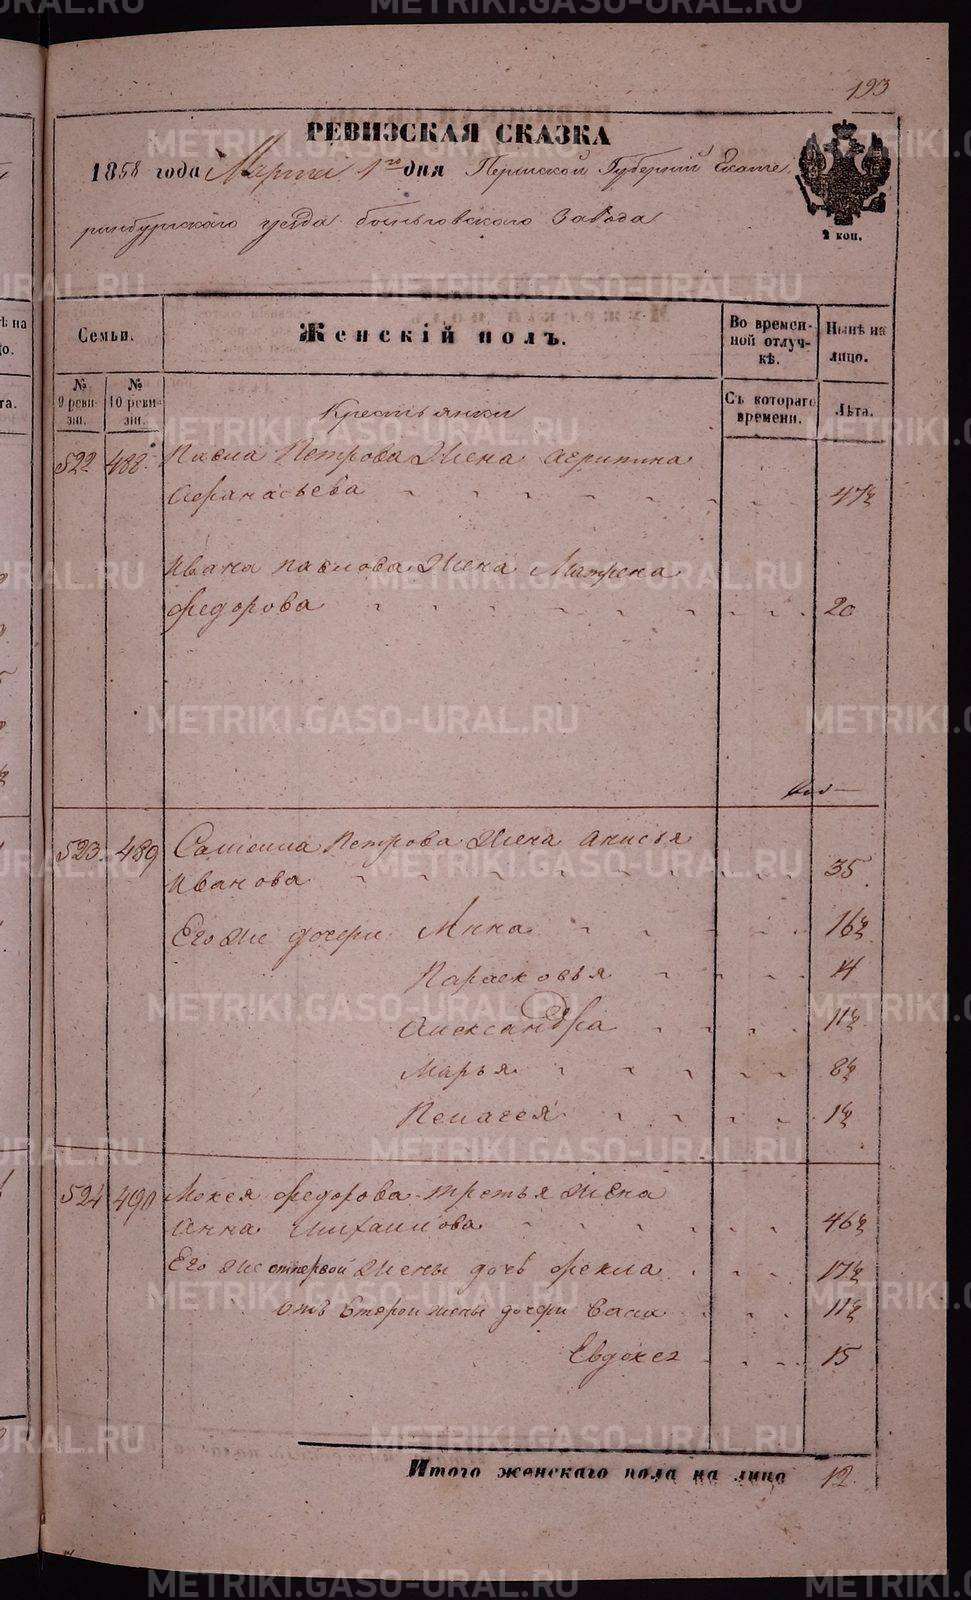 193
РЕВИЗСКАЯ СКАЗКА
1858 года Марта 1го дня Пермской Губерніи Екате
ринбургскаго уезда быньговскаго Завода
2 коп.
Семьи.
Женскій полъ.
Во времен-
ной отлуч-
кѣ.
Нынѣ на
лицо.
№
9 реви-
зіи.
№
10 реви-
зіи.
Съ котораго
времени.
Лѣта.
Крестьянки
522 488 Павла Петрова Жена Агрипина
Афанасьева 47½
Ивана павлова Жена Матрена
федорова 20
523. 489 Самоила Петрова Жена анисья
Иванова 35
Его же дочери Анна 16½
Парасковья 14
Александра 11½
Марья 8½
Пелагея 1½
524 490 Мокея федорова третья жена
анна михаилова 46½
Его же отпервой Жены дочь фекла 17½
отъ Второй жены дочери 11½
Евдокея 15
Итого женскаго пола на лицо 12
METRIKI.GASO-URAL.RU